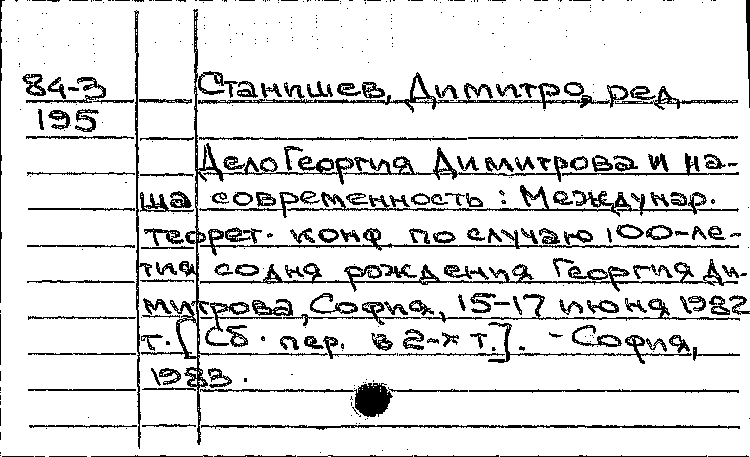 84-3 Станишев, Димитро, ред.
195
Дело Георгия Димитрова и на-
ша современность : Междунар.
теорет. конф. по случаю 100-ле-
тия со дня рождения Георгия Ди-
митрова, София, 15-17 июня 1982
г. [Сб. пер. в 2-х т.]. - София,
1983.